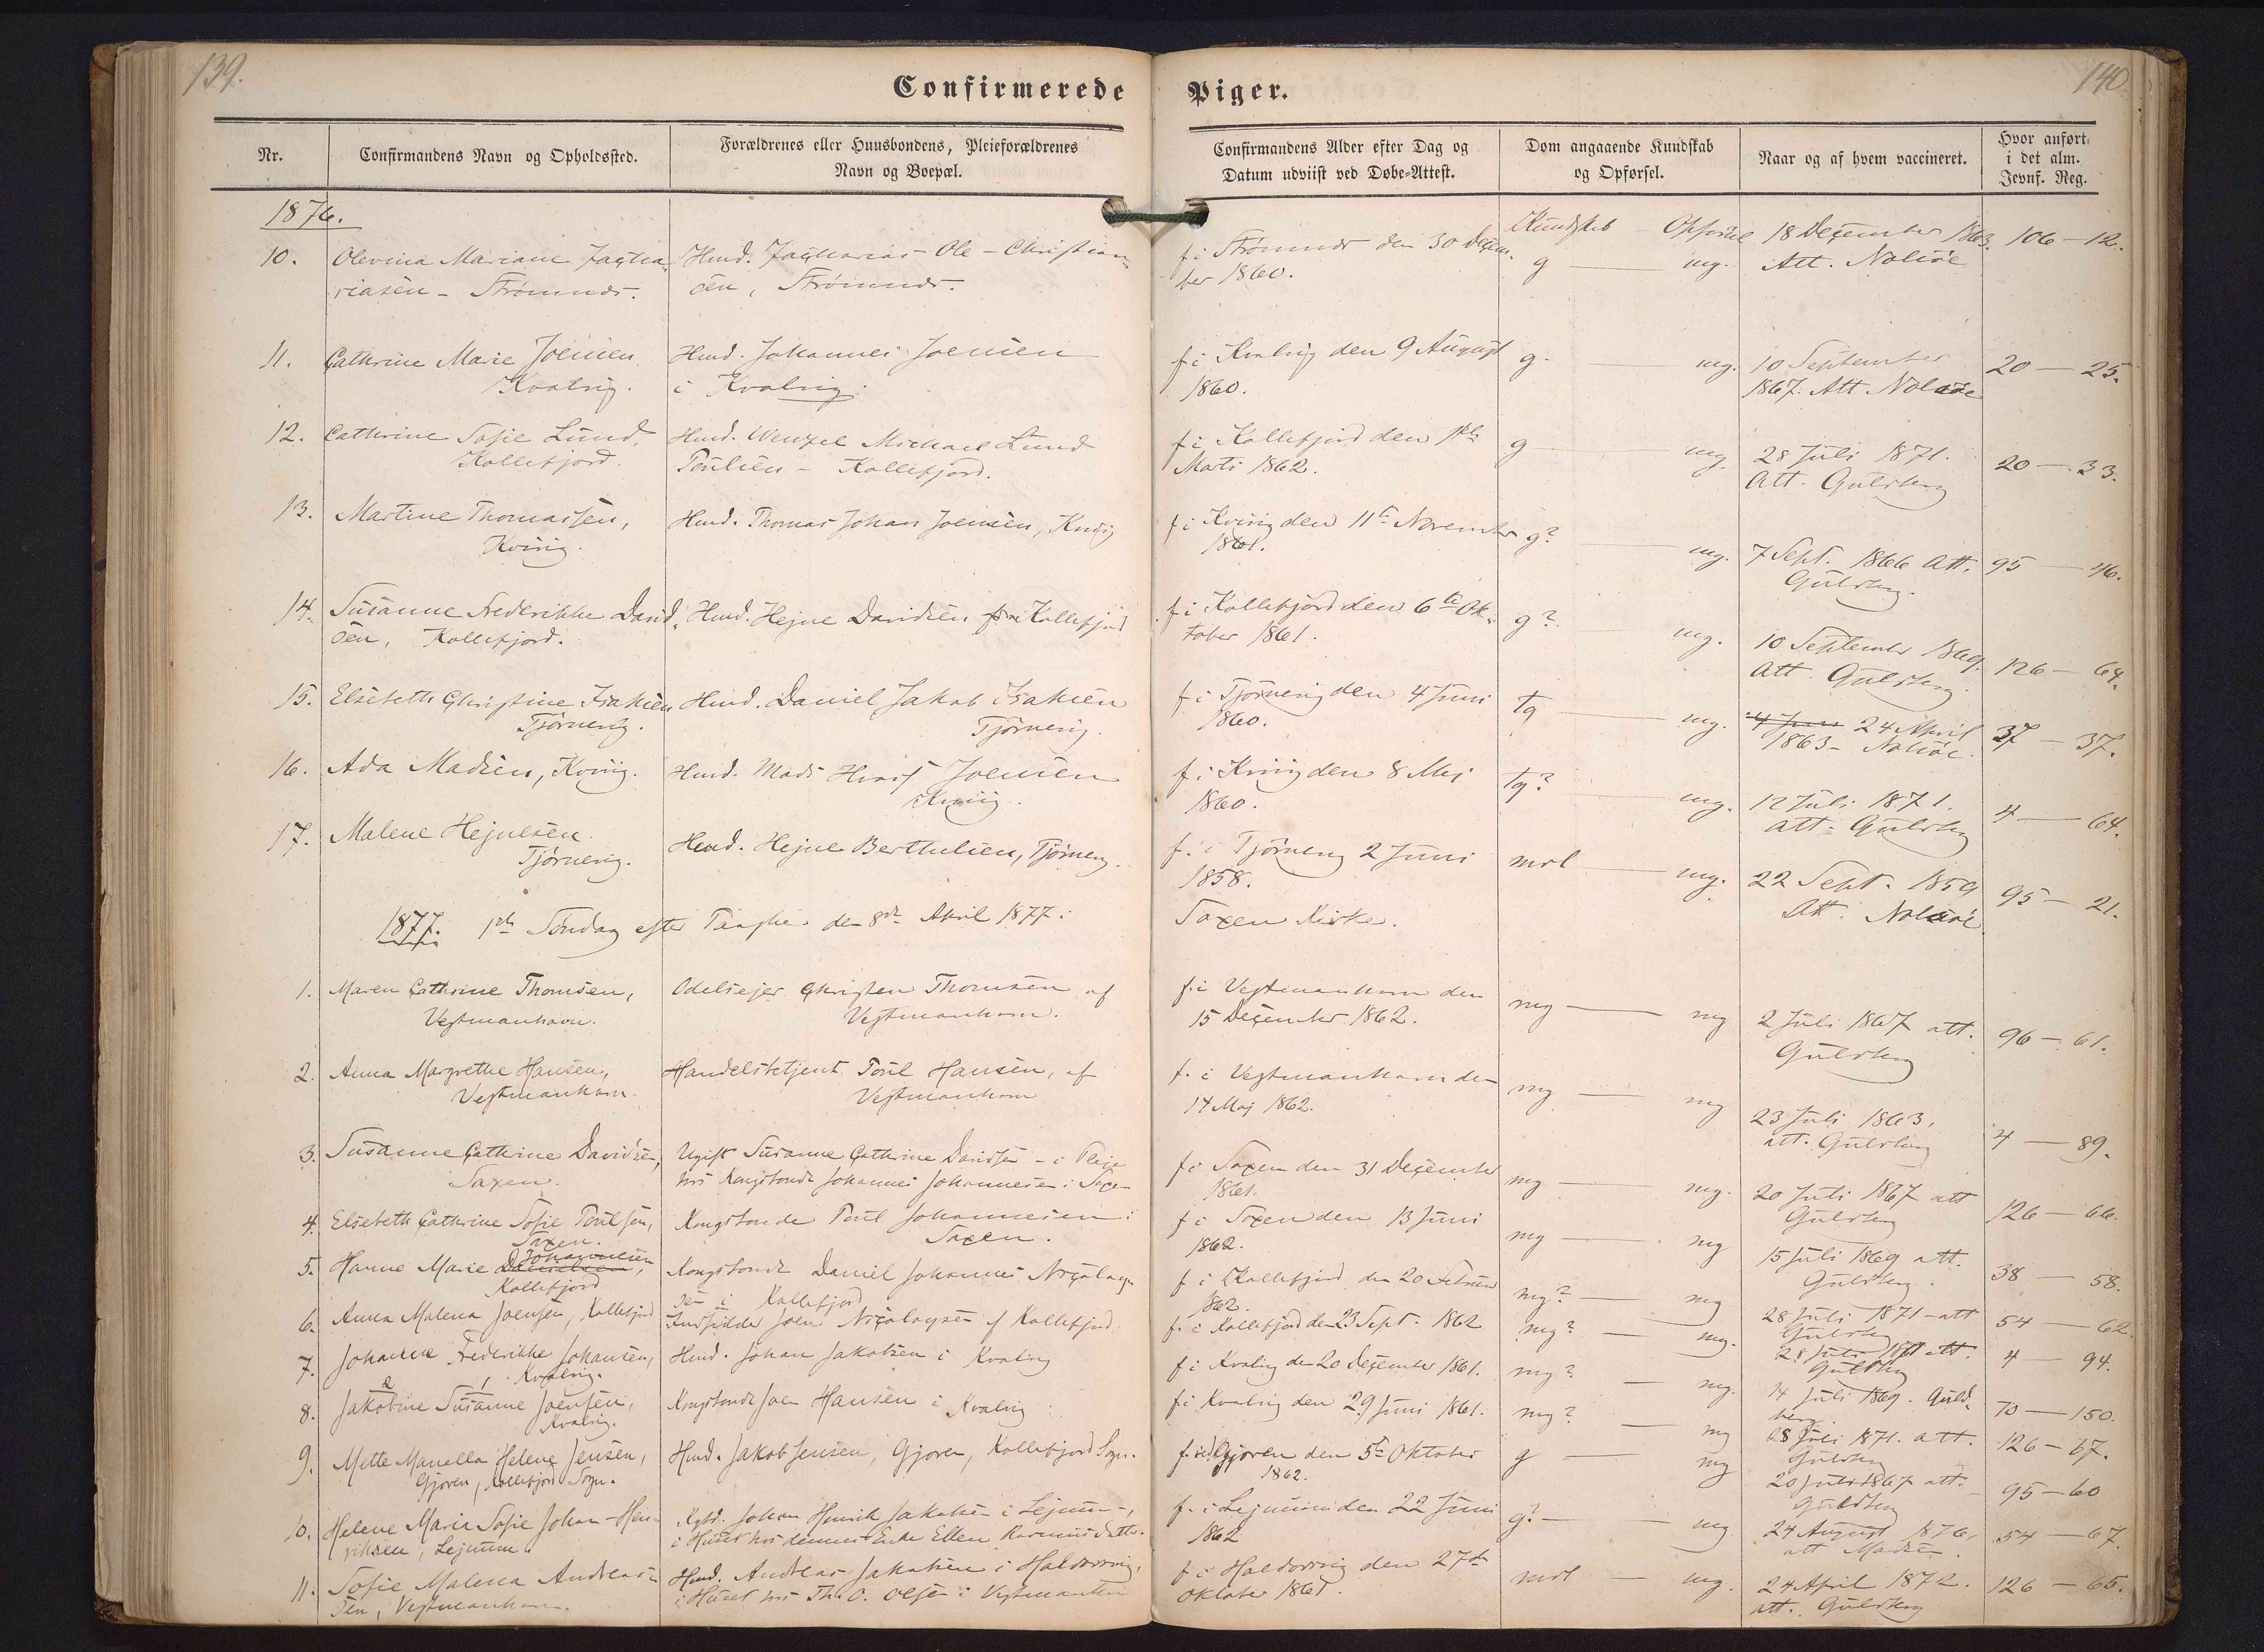 139.
Confirmerede Piger.
140
Nr.
Confirmandens Navn og Opholdssted.
Forældrenes eller Huusbondens, Pleieforældrenes
Navn og Boepæl.
Confirmandens Alder efter Dag og
Datum udviist ved Døbe-Attest.
Dom angaaende Kundskab
og Opførsel.
Naar og af hvem vaccineret.
Hvor anført
i det alm.
Jevnf. Reg.
1876.
Kundskab Opførsel
10. Olevina Mariane Zacha- Husd. Zacharias Ole Christian- f. i Strømnæs den 30 Decem- g mg. 18 December 1863. 106 - 12.
riasen - Strømnæs. sen, Strømnæs. ber 1860. Att. Nolsöe
11. Cathrine Marie Joensen Husd. Johannes Joensen f. i Kvalvig den 9 August g mg. 10 September 20 - 25.
Kvalvig. i Kvalvig. 1860. 1867. Att. Nolsöe
12. Cathrine Sofie Lund, Husd. Wenzel Michael Lund f. i Kollefjord den 1ste g mg. 28 Juli 1871. 20 - 33.
Kollefjord. Poulsen - Kollefjord. Marts 1862. Att. Guldberg
13. Martine Thomassen, Husd. Thomas Johan Joensen, Kvivig f. i Kvivig den 11te November g? mg. 7 Sept. 1866 Att. 95 - 46.
Kvivig. 1861. Guldberg.
14. Susanne Frederikke David- Husd. Hejne Davidsen Kollefjord f. i Kollefjord den 6te Ok- g? mg. 10 September 1869. 126 - 64.
sen, Kollefjord. tober 1861. Att. Guldberg
15. Elsebeth Christine Isaksen Husd. Daniel Jakob Isaksen f. i Tjørnevig den 4 Juni tg mg. 4 Juni 24 April 37 - 37.
Tjørnevig. Tjørnevig. 1860. 1863 - Nolsöe.
16. Ada Madsen, Kvivig. Husd. Mads Joensen f. i Kvivig den 8 Maj tg? mg. 12 Juli 1871. 4 - 64.
Kvivig. 1860. att. Guldberg
17. Malene Hejnesen. Husd. Hejne Berthelsen, Tjørnevig. f. i Tjørnevig 2 Juni mdl mg. 22 Sept. 1859 95 - 21.
Tjørnevig. 1858. Att. Nolsöe
1877. 1ste Søndag efter Paaske den 8de April 1877 i Saxen Kirke.
1. Maren Cathrine Thomsen, Odelsejer Christen Thomsen af f. i Vestmanhavn den mg mg 2 Juli 1867 att. 96 - 61.
Vestmanhavn. Vestmanhavn. 15 December 1862. Guldberg
2. Anna Margrethe Hansen, Handelsbetjent Poul Hansen, af f. i Vestmanhavn den mg mg 23 Juli 1863, 4 - 89.
Vestmanhavn. Vestmanhavn 14 Maj 1862. att. Guldberg
3. Susanne Cathrine Davidsen, Ugift Susanne Cathrine Davidsen - i Pleje f. i Saxen den 31 December mg mg. 20 Juli 1867 att 126 - 66.
Saxen. hos Kongsbonde Johannes Johannesen i Saxen 1861. Guldberg
4. Elsebeth Cathrine Sofie Poulsen, Kongsbonde Poul Johannesen i f. i Saxen den 13 Juni mg mg 15 Juli 1869 att. 38 - 58.
Saxen. Saxen. 1862. Guldberg.
5. Hanne Marie Danielsen Johannesen, Kongsbonde Daniel Johannes Nicolay- f. i Kollefjord den 20 Februar mg? mg 28 Juli 1871 - att 54 - 62.
Kollefjord sen i Kollefjord 1862. Guldberg
6. Anna Malena Joensen, Kollefjord Indsidder Joen Nicolaysen af Kollefjord f. i Kollefjord den 23 Sept. 1862 mg? mg. 28 Juli 1871 att. 4 - 94.
Guldberg
7. Johanne Frederikke Johansen, Husd. Johan Jakobsen i Kvalvig f. i Kvalvig den 20 December 1861. mg? mg. 14 Juli 1869. Guld- 70 - 150.
Kvalvig. berg
8. Jakobine Susanne Joensen, Kongsbonde Joen Hansen i Kvalvig f. i Kvalvig den 29 Juni 1861. mg? mg 28 Juli 1871. att. 126 - 67.
2 1
Kvalvig. Guldberg
9. Mette Manella Helene Jensen, Husd. Jakob Jensen, Gjoven, Kollefjord Sogn. f. i Gjoven den 5te Oktober g mg 20 Juli 1867 att. 95 - 60
Gjoven, Kollefjord Sogn. 1862. Guldberg
10. Helene Maria Sofie Johan-Hen- Kgbd. Johan Henrik Jakobsen i Lejnum, f. i Lejnum den 22 Juni g? mg 24 August 1876, 54 - 67.
riksen, Lejnum i Huset hos dennes Enke Ellen Rasmusdatter. 1862 att Madsen
11. Sofie Malena Andreas- Husd. Andreas Jakobsen i Haldorsvig, f. i Haldorsvig den 27de mdl mg. 24 April 1872. 126 - 65.
sen, Vestmanhavn. i Huset hos Th. O. Olsen i Vestmanhavn Oktober 1861. att. Guldberg